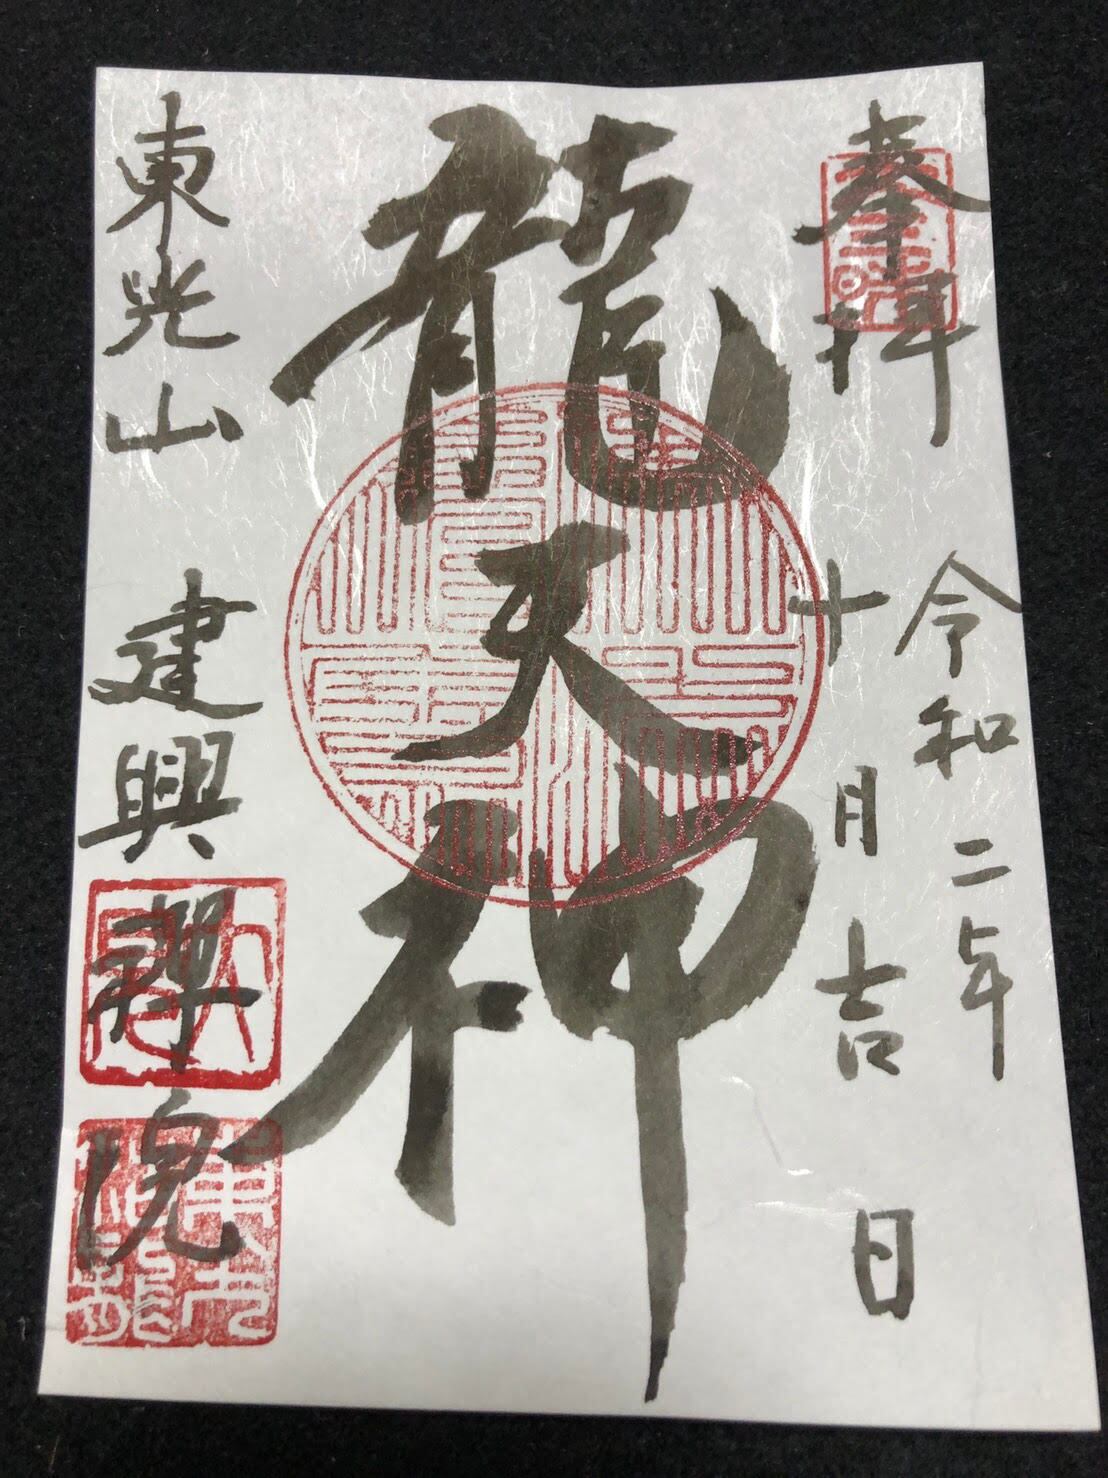 奉拝
令和二年
十月吉日
龍天神
東光山
建興禅院